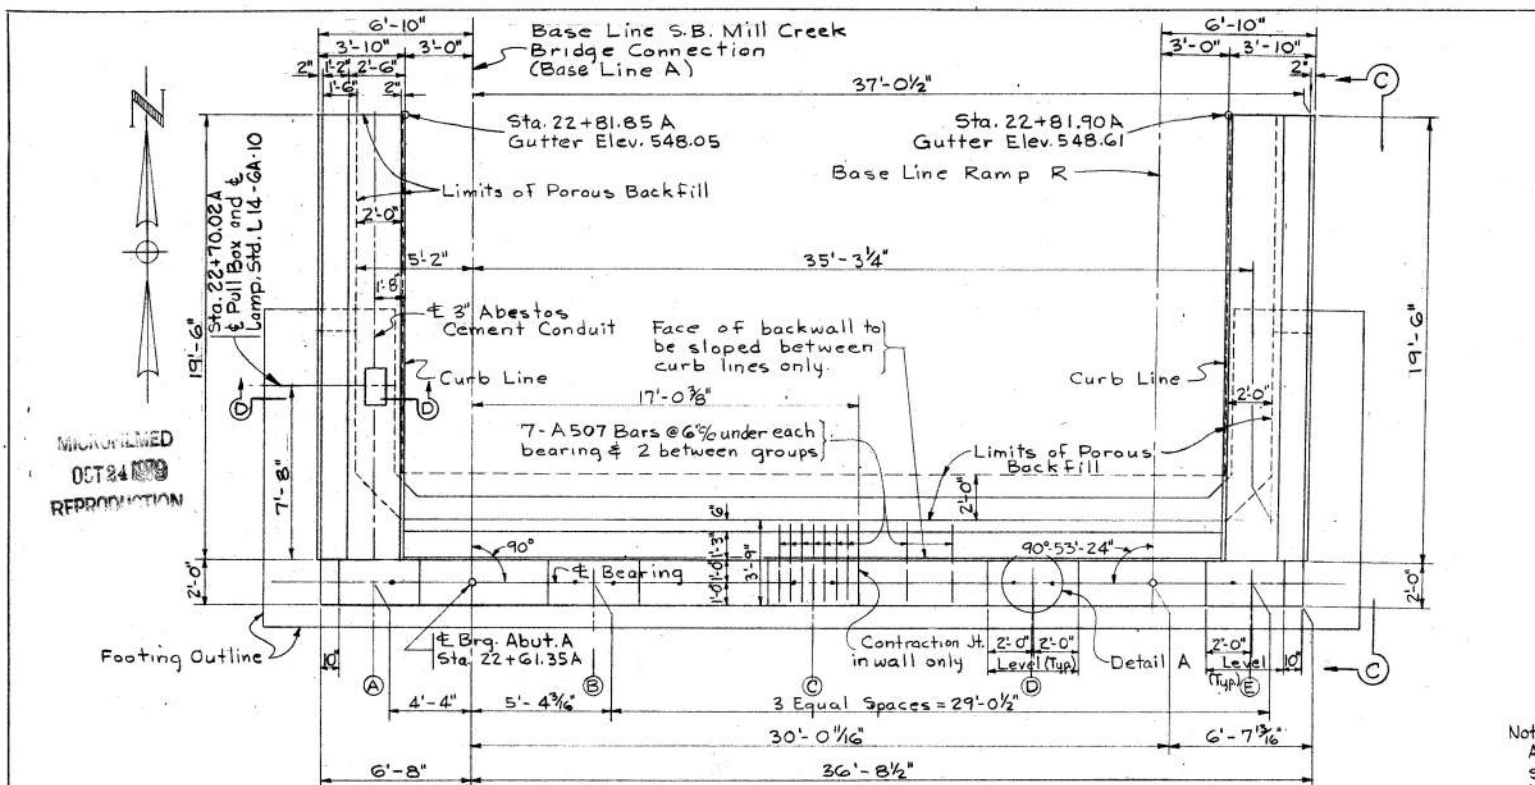 6'-10"
3'-10"
3'-0"
2"
1'-2"
2'-6"
1'-6"
2"
Base Line S.B. Mill Creek
Bridge Connection
(Base Line A)
37'-0½"
6'-10"
3'-0"
3'-10"
2"
C
N
Sta. 22+81.85 A
Gutter Elev. 548.05
Sta. 22+81.90A
Gutter Elev. 548.61
Base Line Ramp R
Limits of Porous Backfill
2'-0"
5'-2"
35'-3¼"
1'-8"
Sta. 22+70.02A
℄ Pull Box and ℄
Lamp. Std. L14-6A-10
19'-6"
19'-6"
℄ 3" Abestos
Cement Conduit
Face of backwall to
be sloped between
curb lines only.
Curb Line
Curb Line
D
D
17'-0⅜"
2'-0"
7-A507 Bars @6"% under each
bearing & 2 between groups
Limits of Porous
Backfill
2'-0"
MICROFILMED
OCT 24 1979
REPRODUCTION
7'-8"
6"
1'-3"
1'-0"
1'-0"
3'-9"
90°
90°-53'-24"
℄ Bearing
2'-0"
2'-0"
Footing Outline
10"
℄ Brg. Abut. A
Sta. 22+61.35A
Contraction Jt.
in wall only
2'-0"
2'-0"
Level (Typ)
Detail A
2'-0"
Level
(Typ.)
10"
C
A
B
C
D
E
4'-4"
5'-4³⁄₁₆"
3 Equal Spaces = 29'-0½"
30'-0¹¹⁄₁₆"
6'-7¹³⁄₁₆"
6'-8"
36'-8½"
Not
A
S